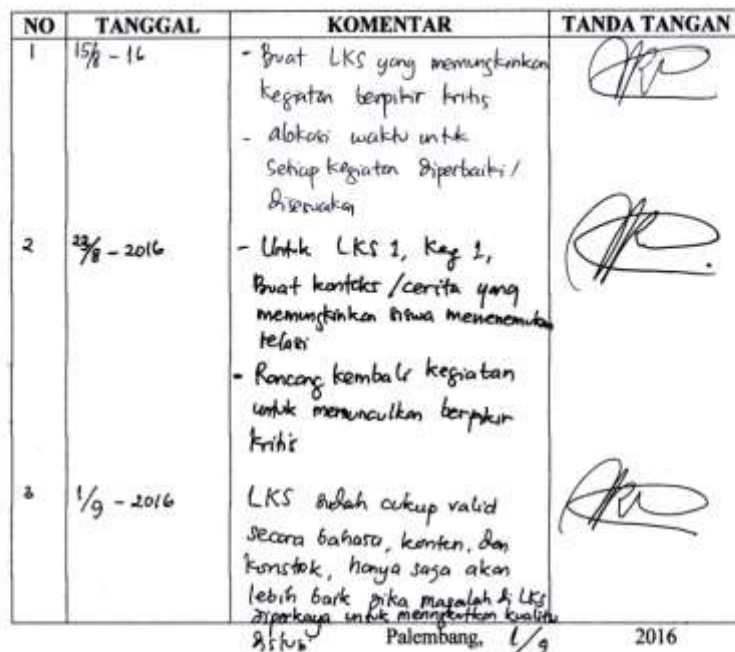 NO TANGGAL KOMENTAR TANDA TANGAN
1 15/8 - 16 - Buat LKS yang memungkinkan
kegiatan berpikir kritis
- alokasi waktu untuk
setiap kegiatan diperbaiki /
disesuaikan
2 23/8 - 2016 - Untuk LKS 1, Keg 1,
Buat konteks / cerita yang
memungkinkan siswa menemukan
relasi
- Rancang kembali kegiatan
untuk memunculkan berpikir
kritis
3 1/9 - 2016 LKS sudah cukup valid
secara bahasa, konten, dan
konstruk, hanya saja akan
lebih baik jika masalah di LKS
diperkaya untuk meningkatkan kualitas
Palembang, 1/9 2016